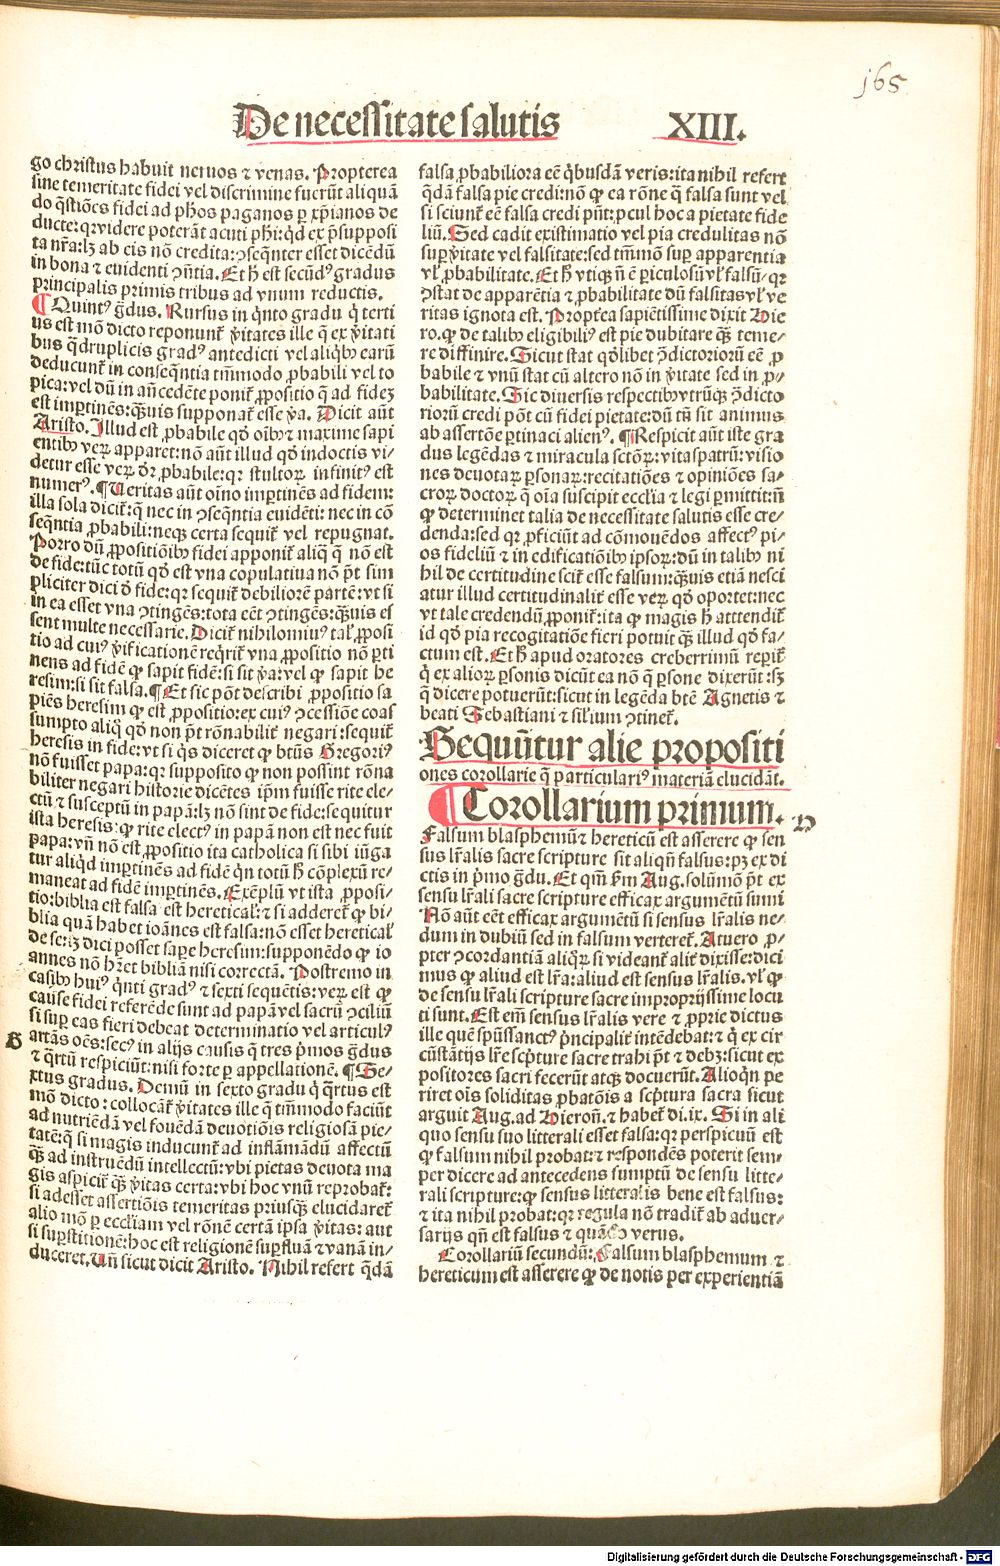 165
De necessitate salutis XIII.
go christus habuit neruos ⁊ venas. Propterea
sine temeritate fidei vel discrimine fuerũt aliquã
do q̃stiões fidei ad phos paganos ꝑ xp̃ianos de
ducte: qꝛ videre poterãt acuti phi: qd ex p̃supposi
ta nr̃a: lꝫ ab eis nõ credita: ꝯseq̃nter esset dicẽdũ
in bona ⁊ euidenti ꝯñtia. Et h̃ est secũdꝰ gradus
principalis primis tribus ad vnum reductis.
¶ Quintꝰ g̃dus. Rursus in q̇nto gradu q̇ terti
us est mõ dicto reponunt̃ v̇itates ille q̃ ex v̇itati
bus q̃druplicis gradꝰ antedicti vel aliqͥbꝫ earũ
deducunt̃ in conseq̃ntia tm̃modo ꝓbabili vel to
pica: vel dũ in añcedẽte ponit̃ ꝓpositio q̃ ad fidez
est imꝑtinẽs: q̃uis supponat̃ esse ṽa. Dicit aũt
Aristo. Illud est ꝓbabile qd̓ oĩbꝫ ⁊ maxime sapi
entibꝫ veꝝ apparet: nõ aũt illud qd̓ indoctis vi⸗
detur esse veꝝ dr̃ ꝓbabile: qꝛ stultoꝝ infinitꝰ est
numerꝰ. ¶ Veritas aũt oĩno imꝑtinẽs ad fidem:
illa sola dicit̃: q̃ nec in ꝯseq̃ntia euidẽti: nec in cõ
seq̃ntia ꝓbabili: neqꝫ certa sequit̃ vel repugnat.
Porro dũ ꝓpositiõibꝫ fidei apponit̃ aliq̃ q̃ nõ est
de fide: tũc totũ qd̓ est vna copulatiua nõ p̃t sim
pliciter dici d̓ fide: qꝛ sequit̃ debiliorẽ partẽ: vt si
in ea esset vna ꝯtingẽs: tota eẽt ꝯtingẽs: q̃uis es
sent multe necessarie. Dicit̃ nihilominꝰ tal̃ ꝓposi
tio ad cuiꝰ v̇ificationẽ req̇rit̃ vna ꝓpositio nõ ꝑti
nens ad fidẽ ꝙ sapit fidẽ: si sit ṽa: vel ꝙ sapit he
resim: si sit falsa. ¶ Et sic põt describi ꝓpositio sa
piẽs heresim ꝙ est ꝓpositio: ex cuiꝰ ꝯcessiõe coas
sumpto aliq̃ qd̓ non p̃t rõnabilit̃ negari: sequit̃
heresis in fide: vt si q̇s diceret ꝙ btũs Gregoriꝰ
nõ fuisset papa: qꝛ supposito ꝙ non possint rõna
biliter negari historie dicẽtes ip̃m fuisse rite ele⸗
ctũ ⁊ susceptũ in papã: lꝫ nõ sint de fide: sequitur
ista heresis: ꝙ rite electꝰ in papã non est nec fuit
papa: vñ nõ est ꝓpositio ita catholica si sibi iũga
tur aliqd imꝑtinẽs ad fidẽ q̇n totũ h̃ cõplexũ re⸗
maneat ad fidẽ imꝑtinẽs. Exẽplũ vt ista ꝓposi⸗
tio: biblia est falsa est heretical̃: ⁊ si adderet̃ ꝙ bi⸗
blia quã habet ioãnes est falsa: nõ esset heretical̃
de se: lꝫ dici posset saꝑe heresim: supponẽdo ꝙ io
annes nõ hr̃et bibliã nisi correctã. Postremo in
casibꝫ huiꝰ q̇nti gradꝰ ⁊ sexti sequẽtis: veꝝ est ꝙ
cause fidei referẽde sunt ad papã vel sacrũ ꝯciliũ
si suꝑ eas fieri debeat determinatio vel articulꝰ
G artãs oẽs: secꝰ in alijs causis q̃ tres p̓mos g̃dus
⁊ q̃rtũ respiciũt: nisi forte ꝑ appellationẽ. ¶ Se⸗
xtus gradus. Demũ in sexto gradu q̇ q̃rtus est
mõ dicto: collocãt̃ v̇itates ille q̃ tm̃modo faciũt
ad nutriẽdã vel fouẽdã deuotiõis religiosã pie⸗
tatẽ: q̃ si magis inducunt̃ ad inflãmãdũ affectũ
q̃ꝫ ad instruẽdũ intellectũ: vbi pietas deuota ma
gis aspicit̃ q̃ꝫ v̇itas certa: vbi hoc vnũ reprobat̃:
si adesset assertiõis temeritas priusq̃ꝫ elucidaret̃
alio mõ ꝑ eccl̃iam vel rõnẽ certã ipsa v̇itas: aut
si suꝑstitionẽ: hoc est religionẽ suꝑfluã ⁊ vanã in⸗
duceret. Vñ sicut dicit Aristo. Nihil refert q̃dã
falsa ꝓbabiliora eẽ q̇busdã veris: ita nihil refert
q̃dã falsa pie credi: nõ ꝙ ea rõne q̃ falsa sunt vel
si sciunt̃ eẽ falsa credi pñt: ꝓcul hoc a pietate fide
liũ. Sed cadit existimatio vel pia credulitas nõ
suꝑ v̇itate vel falsitate: sed tm̃mõ suꝑ apparentia
vl̃ ꝓbabilitate. Et h̃ vtiqꝫ ñ ẽ ꝑiculosũ vl̃ falsũ: qꝛ
ꝯstat de apparẽtia ⁊ ꝓbabilitate dũ falsitas vl̃ ve
ritas ignota est. Propt̃ea sapiẽtissime dixit Hie
ro. ꝙ de talibꝫ eligibiliꝰ est pie dubitare q̃ꝫ teme⸗
re diffinire. Sicut stat qd̓libet ꝯ̃dictorioꝝ eẽ ꝓ
babile ⁊ vnũ stat cũ altero nõ in v̇itate sed in ꝓ⸗
babilitate. Sic diuersis respectibꝫ vtrũqꝫ ꝯ̃dicto
rioꝝ credi põt cũ fidei pietate: dũ tñ sit animus
ab assertõe ꝑtinaci alienꝰ. ¶ Respicit aũt iste gra
dus legẽdas ⁊ miracula sctõꝝ: vitas patrũ: visio
nes deuotaꝝ ꝑsonaꝝ: recitatiões ⁊ opiniões sa⸗
croꝝ doctoꝝ q̃ oĩa suscipit eccl̃ia ⁊ legi ꝑmittit: ñ
ꝙ determinet talia de necessitate salutis esse cre⸗
denda: sed qꝛ ꝓficiũt ad cõmouẽdos affectꝰ pi⸗
os fideliũ ⁊ in edificatiõibꝫ ipsoꝝ: dũ in talibꝫ ni
hil de certitudine scit̃ esse falsum: q̃uis etiã nesci
atur illud certitudinalit̃ esse veꝝ qd̓ oportet: nec
vt tale credendũ ꝓponit̃: ita ꝙ magis h̃ atttendit̃
id qd̓ pia recogitatiõe fieri potuit q̃ꝫ illud qd̓ fa⸗
ctum est. Et h̃ apud oratores creberrimũ reperit̃
q̇ ex alioꝝ ꝑsonis dicũt ea nõ q̃ ꝑsone dixerũt: sꝫ
q̃ dicere potuerũt: sicut in legẽda btẽ Agnetis ⁊
beati Sebastiani ⁊ sil̃ium ꝯtinet̃.
Sequũtur alie propositi
ones corollarie q̃ particulariꝰ materiã elucidãt.
¶ Corollarium primum. D
Falsum blasphemũ ⁊ hereticũ est asserere ꝙ sen
sus lr̃alis sacre scripture sit aliqñ falsus: pꝫ ex di
ctis in p̓mo g̃du. Et qm̃ ẜm Aug. solũmõ p̃t ex
sensu lr̃ali sacre scripture efficax argumẽtũ sumi
Nõ aũt eẽt efficax argumẽtũ si sensus lr̃alis ne⸗
dum in dubiũ sed in falsum verteret̃. Atuero ꝓ⸗
pter ꝯcordantiã aliqꝝ si videant̃ alit̃ dixisse: dici
mus ꝙ aliud est lr̃a: aliud est sensus lr̃alis. vl̃ ꝙ
de sensu lr̃ali scripture sacre improprijssime locu
ti sunt. Est em̃ sensus lr̃alis vere ⁊ ꝓprie dictus
ille quẽ spũssanctꝰ p̓ncipalit̃ intẽdebat: ⁊ q̇ ex cir
cũstãtijs lr̃e scp̃ture sacre trahi p̃t ⁊ debꝫ: sicut ex
positores sacri fecerũt atqꝫ docuerũt. Alioq̇n pe
riret oĩs soliditas ꝓbatõis a scp̃tura sacra sicut
arguit Aug. ad Hieroñ. ⁊ habet̃ di. ix. Si in ali
quo sensu suo litterali esset falsa: qꝛ perspicuũ est
ꝙ falsum nihil probat: ⁊ respondẽs poterit sem⸗
per dicere ad antecedens sumptũ de sensu litte⸗
rali scripture: ꝙ sensus litteralis bene est falsus:
⁊ ita nihil probat: qꝛ regula nõ tradit̃ ab aduer⸗
sarijs qñ est falsus ⁊ quãdo verus.
Corollariũ secundũ: Falsum blasphemum ⁊
hereticum est asserere ꝙ de notis per experientiã
Digitalisierung gefördert durch die Deutsche Forschungsgemeinschaft - DFG